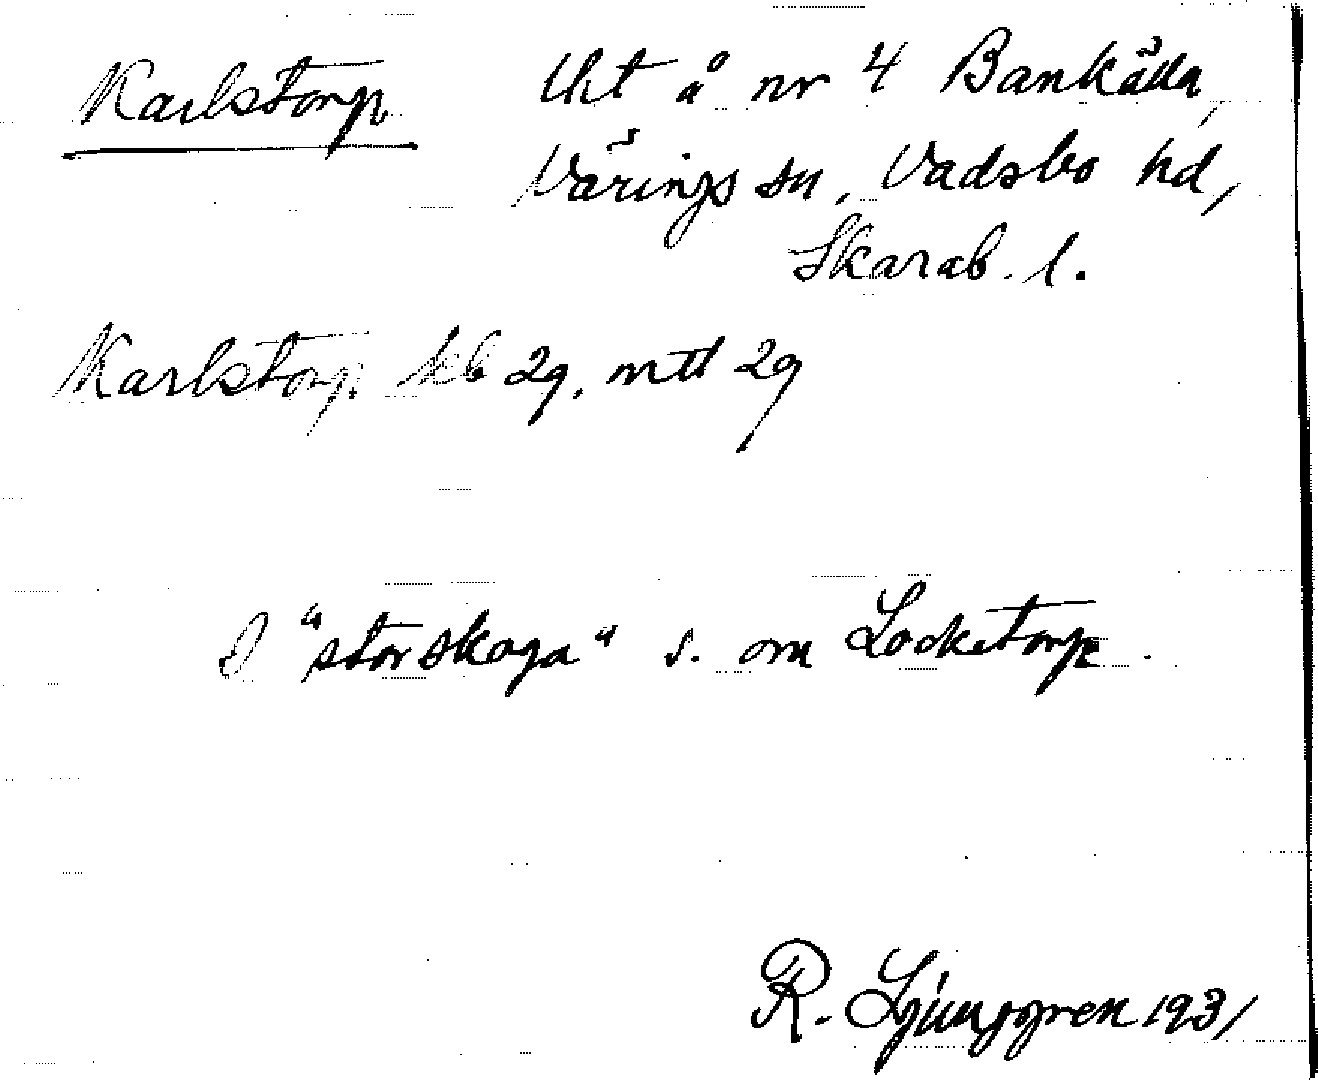 Karlstorp Uht å nr 4 Bankälla,
Värings sn, Vadsbo hd,
Skarab. l.
Karlstorp kb 29, mtl 29
I "storskoga" s. om Locketorp.
R. Ljunggren 1931